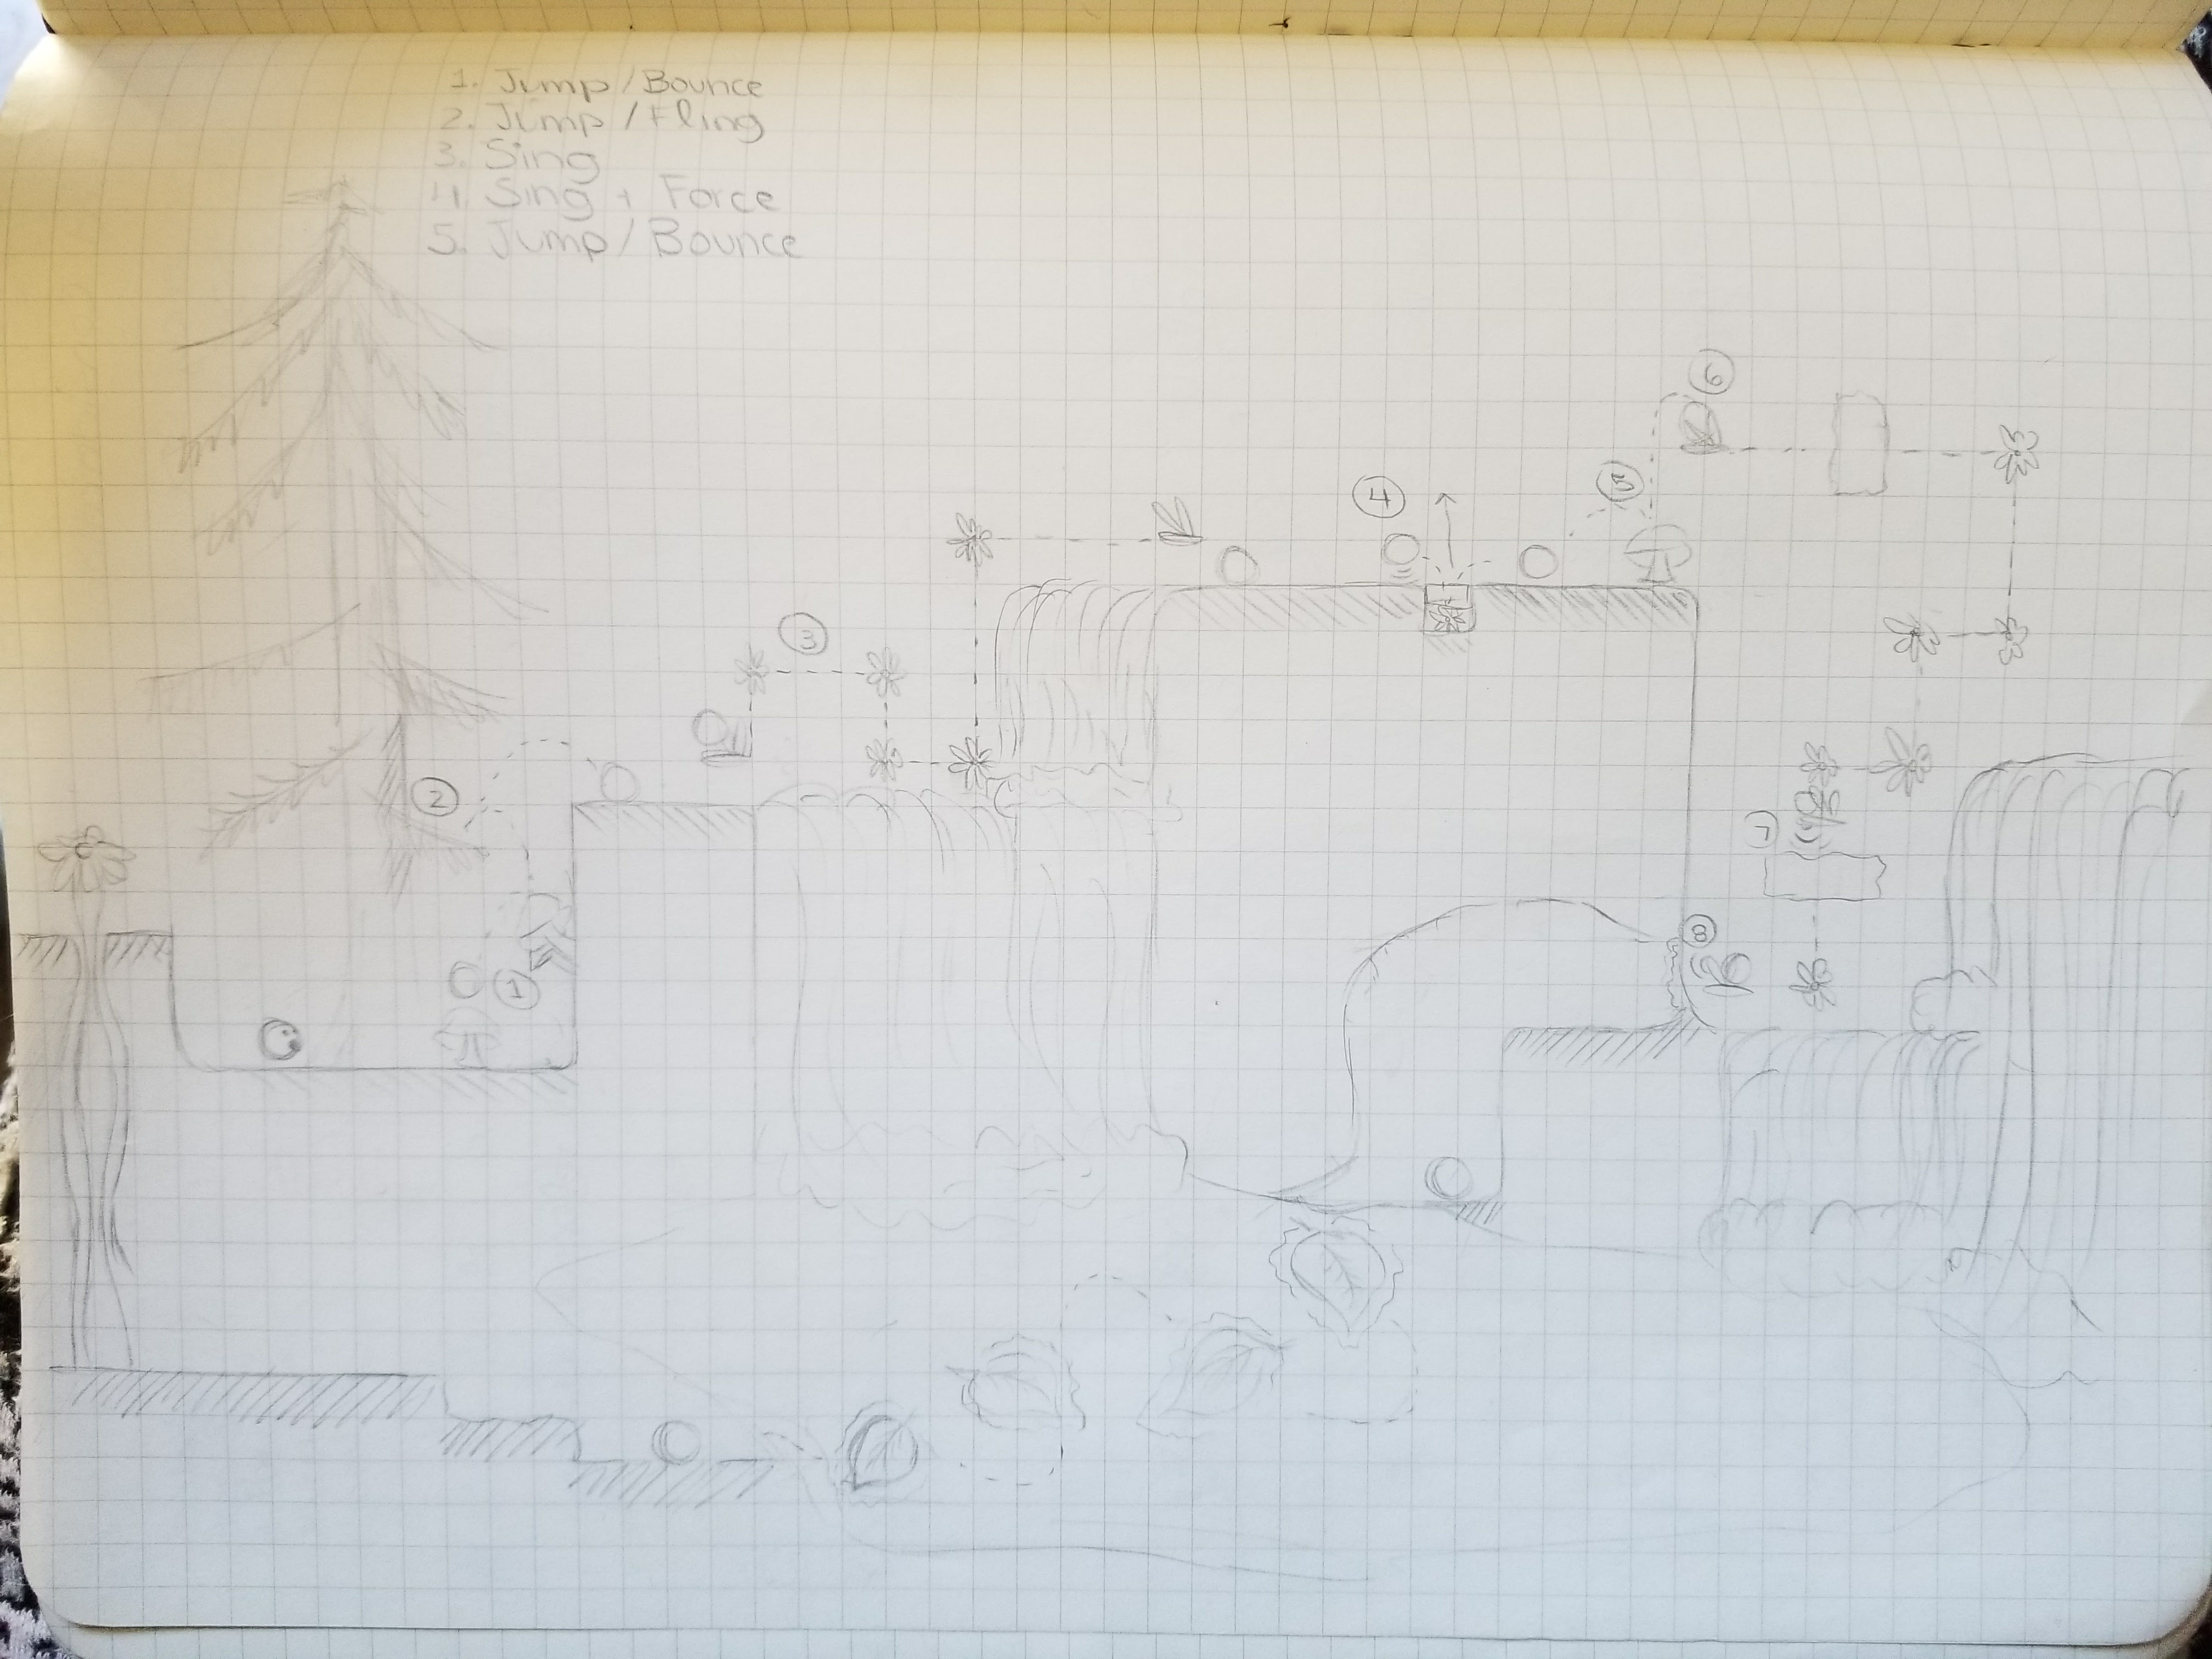 1. Jump/Bounce
2. Jump/Fling
3. Sing
4. Sing + Force
5. Jump/Bounce
6
4
5
3
2
7
8
1